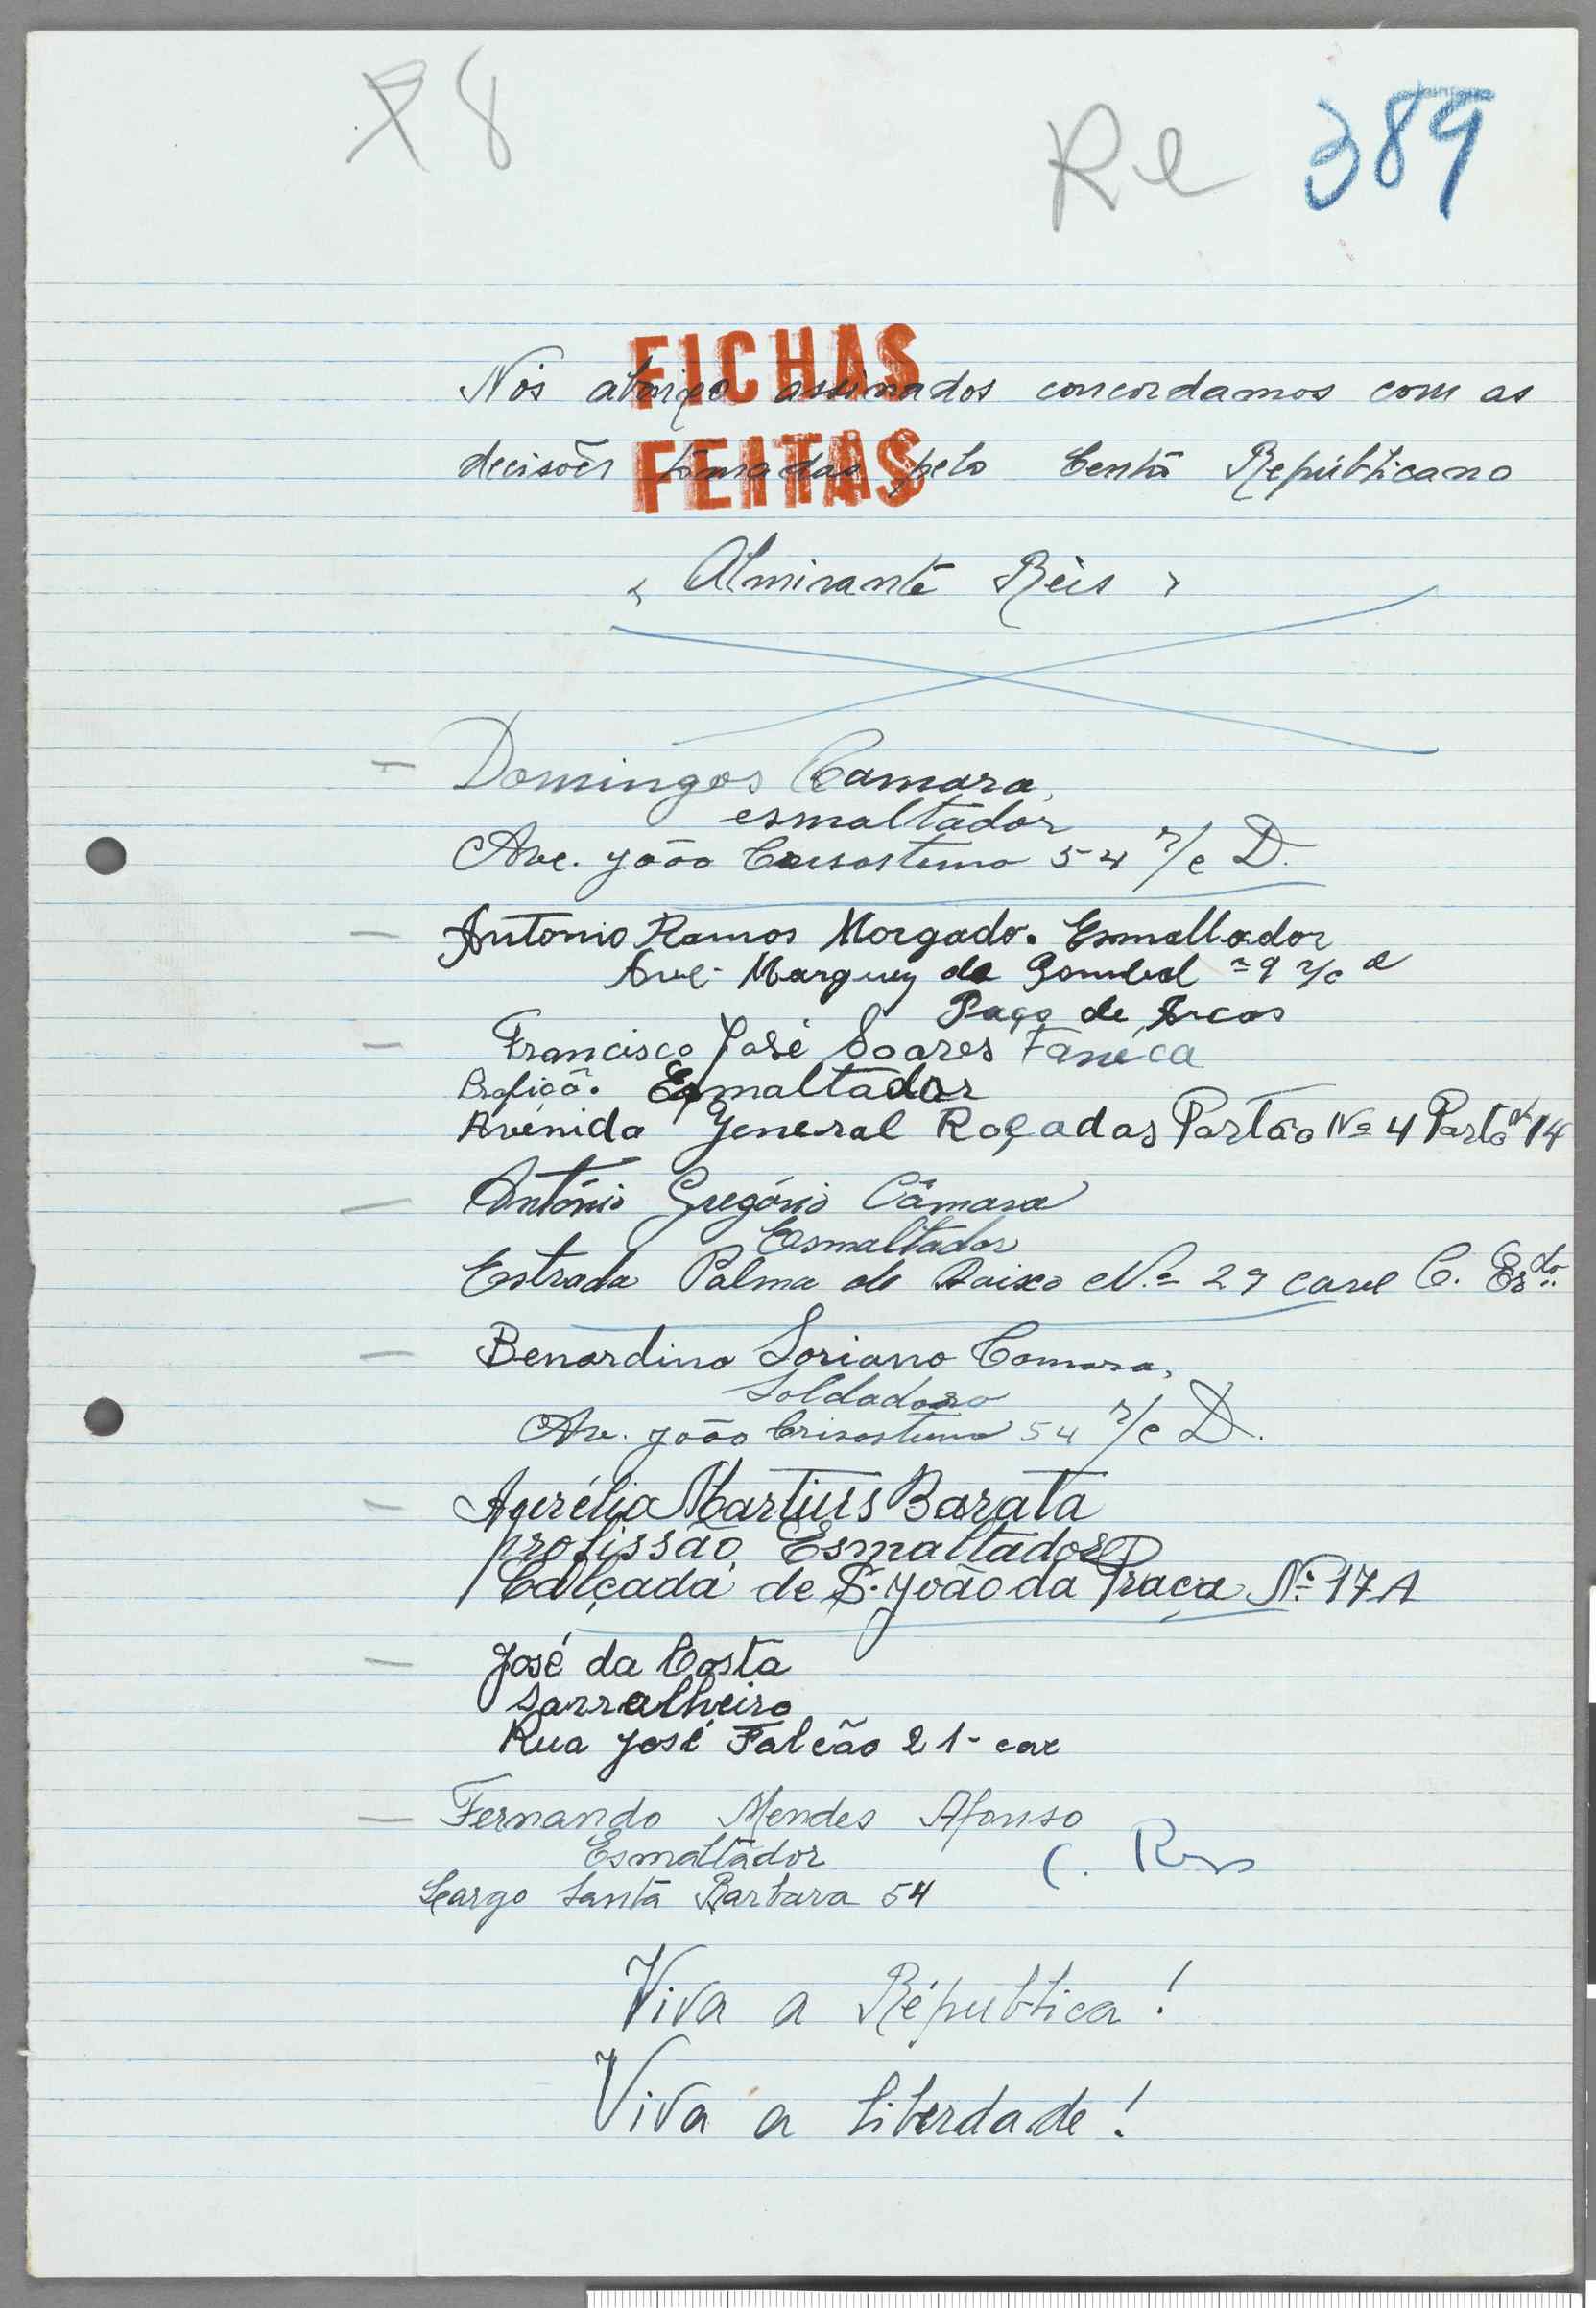 78
Re 389
FICHAS
FEITAS
Nós abaixo assinados concordamos com as
decisões tomadas pelo Centro Républicano
« Almirante Réis »
— Domingos Camara,
esmaltador
Ave. João Crisostemo 54 r/c D.
— Antonio Ramos Morgado. Esmaltador
Ave. Marquez de Pombal nº 9 r/c d
Paço de Arcos
— Francisco José Soares Fanéca
Profiçõ. Esmaltador
Avenida General Roçadas Partão Nº 4 Parta nº 14
— António Gregório Câmara
Esmaltador
Estrada Palma de Baixo Nº 29 cave C. Esdo
— Benardino Soriano Camara,
Soldador
Av. João Crisostemo 54 r/c D.
— Aurélio Martins Barata
profissão Esmaltador
Calçada de S. João da Praça Nº 17 A
— José da Costa
Sarralheiro
Rua José Falcão 21- cave
— Fernando Mendes Afonso
Esmaltador
Largo Santa Barbara 54
Viva a Républica!
Viva a liberdade!